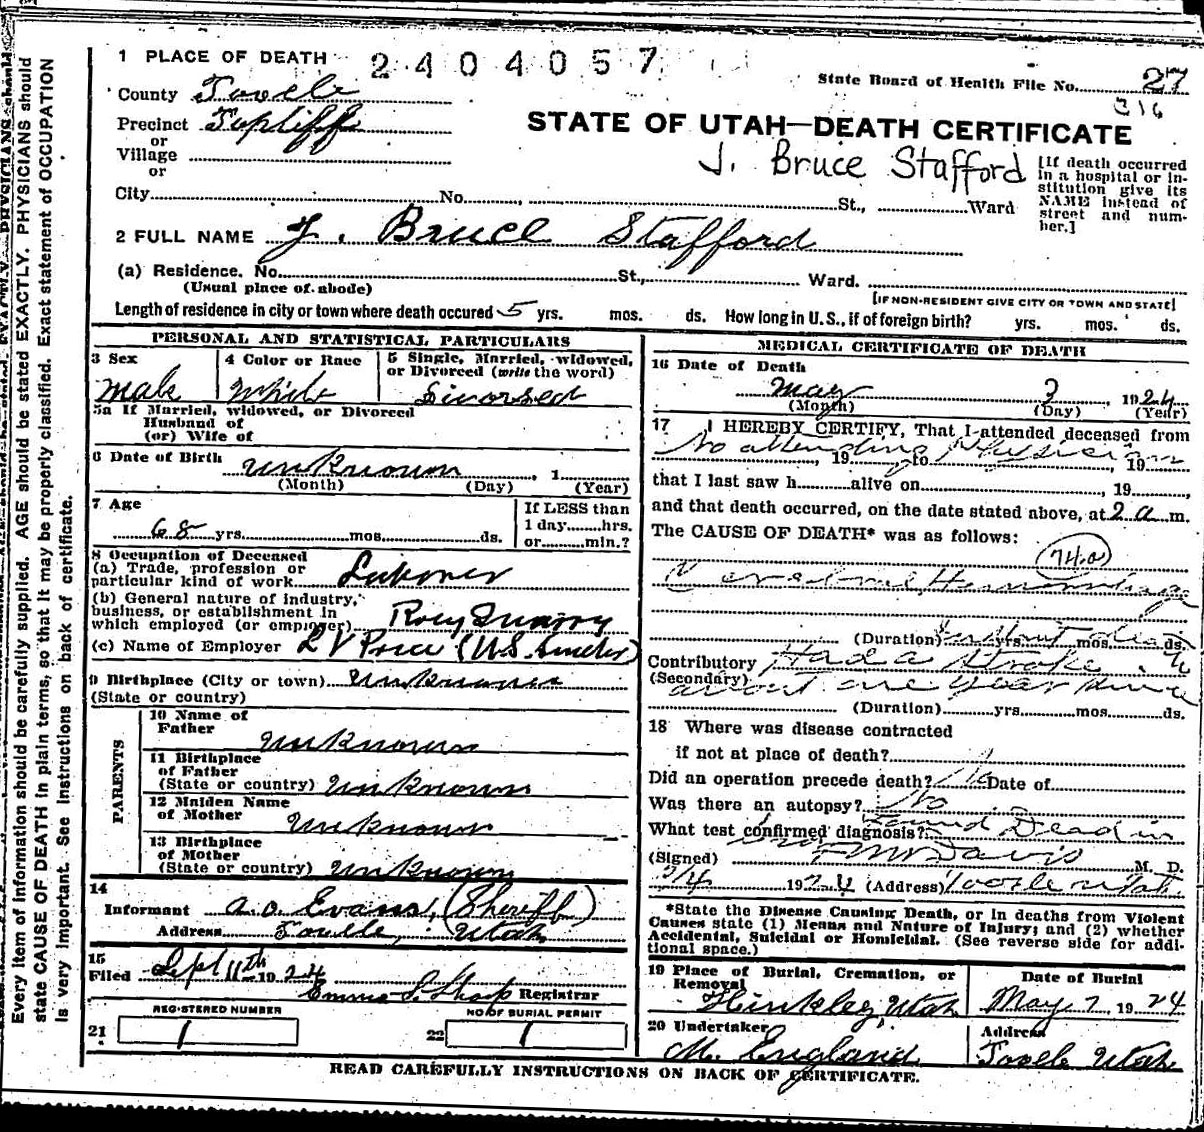 1 PLACE OF DEATH 2404057
State Board of Health File No. 27
316
County Tooele
Precinct Topliff
or
Village
or
STATE OF UTAH—DEATH CERTIFICATE
J. Bruce Stafford
[If death occurred in a hospital or institution give its NAME instead of street and number.]
City No. St., Ward
2 FULL NAME J. Bruce Stafford
(a) Residence. No. St., Ward.
(Usual place of abode)
[IF NON-RESIDENT GIVE CITY OR TOWN AND STATE]
Length of residence in city or town where death occured 5 yrs. mos. ds. How long in U.S., if of foreign birth? yrs. mos. ds.
PERSONAL AND STATISTICAL PARTICULARS
3 Sex
Male
4 Color or Race
White
5 Single, Married, widowed,
or Divorced (write the word)
Divorsed
5a If Married, widowed, or Divorced
Husband of
(or) Wife of
6 Date of Birth unknown, 1
(Month) (Day) (Year)
7 Age
68 yrs. mos. ds.
If LESS than
1 day hrs.
or min.?
8 Occupation of Deceased
(a) Trade, profession or
particular kind of work Laborer
(b) General nature of industry,
business, or establishment in
which employed (or employer) Rock Quarry
(c) Name of Employer L V Price (U.S. Smelter)
9 Birthplace (City or town) unknown
(State or country)
PARENTS
10 Name of
Father
unknown
11 Birthplace
of Father
(State or country) unknown
12 Maiden Name
of Mother unknown
13 Birthplace
of Mother
(State or country) unknown
14
Informant A. O. Evans, (Sheriff)
Address Tooele, Utah
15
Filed Sept 11th 1924
Emma S. Sharp Registrar
REGISTERED NUMBER
21 1
NO OF BURIAL PERMIT
22 1
MEDICAL CERTIFICATE OF DEATH
16 Date of Death
May 3, 1924
(Month) (Day) (Year)
17 I HEREBY CERTIFY, That I attended deceased from
No attending Physician, 19 to 19
that I last saw h alive on, 19
and that death occurred, on the date stated above, at 2 a m.
The CAUSE OF DEATH* was as follows:
74.a
Cerebral Hemorrhage
(Duration) yrs. mos. ds.
Contributory Had a stroke
(Secondary) about one year since
(Duration) yrs. mos. ds.
18 Where was disease contracted
if not at place of death?
Did an operation precede death? No Date of
Was there an autopsy? No
What test confirmed diagnosis? Found Dead in
(Signed) F M Davis M. D.
5/4 1924 (Address) Tooele Utah
*State the Disease Causing Death, or in deaths from Violent
Causes state (1) Means and Nature of Injury; and (2) whether
Accidental, Suicidal or Homicidal. (See reverse side for addi-
tional space.)
19 Place of Burial, Cremation, or
Removal
Hinkley, Utah
Date of Burial
May 7, 1924
20 Undertaker
M. England
Address
Tooele Utah
READ CAREFULLY INSTRUCTIONS ON BACK OF CERTIFICATE.
Every item of information should be carefully supplied. AGE should be stated EXACTLY. PHYSICIANS should
state CAUSE OF DEATH in plain terms, so that it may be properly classified. Exact statement of OCCUPATION
is very important. See Instructions on back of certificate.